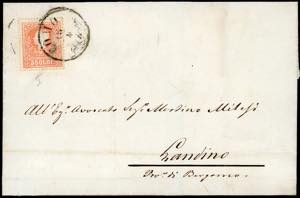 5 SOLDI
All'Egr. Avvocato Sigr. Martino Milesi
Gandino
Prov. di Bergamo